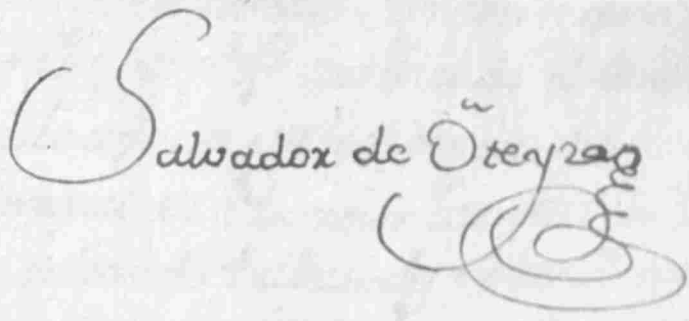 Salvador de Õteyza